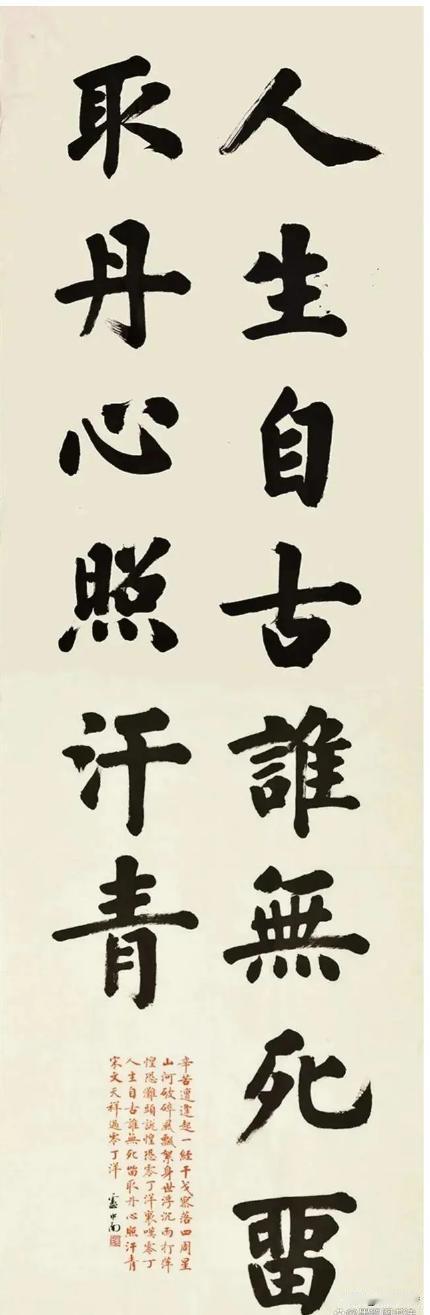 人生自古誰無死畱
取丹心照汗青
辛苦遭逢起一經干戈寥落四周星
山河破碎風飄絮身世浮沉雨打萍
惶恐灘頭說惶恐零丁洋裏嘆零丁
人生自古誰無死畱取丹心照汗青
宋文天祥過零丁洋
盧中南